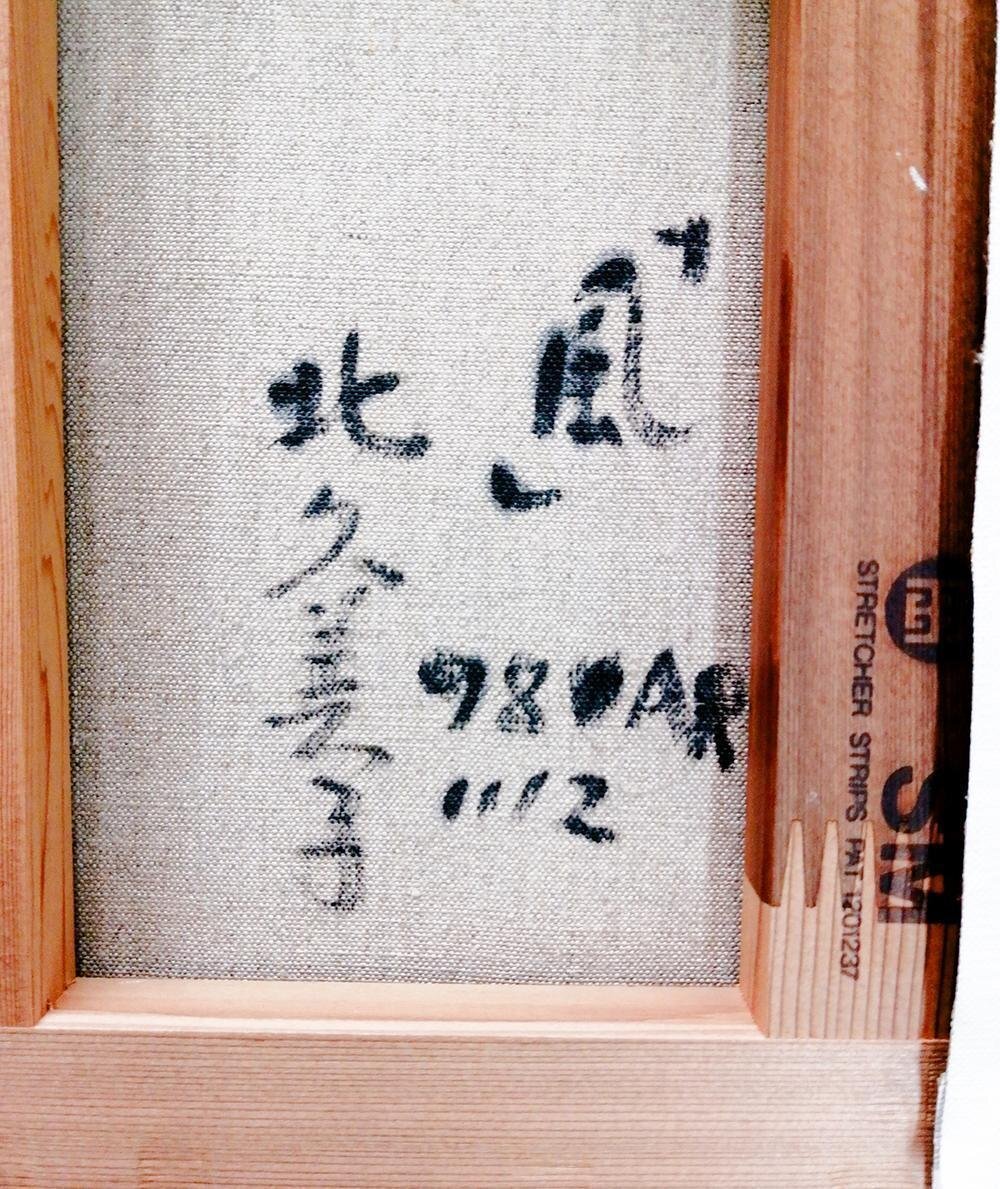 「風」
北久美子
1112
STRETCHER STRIPS PAT 1201237
SM